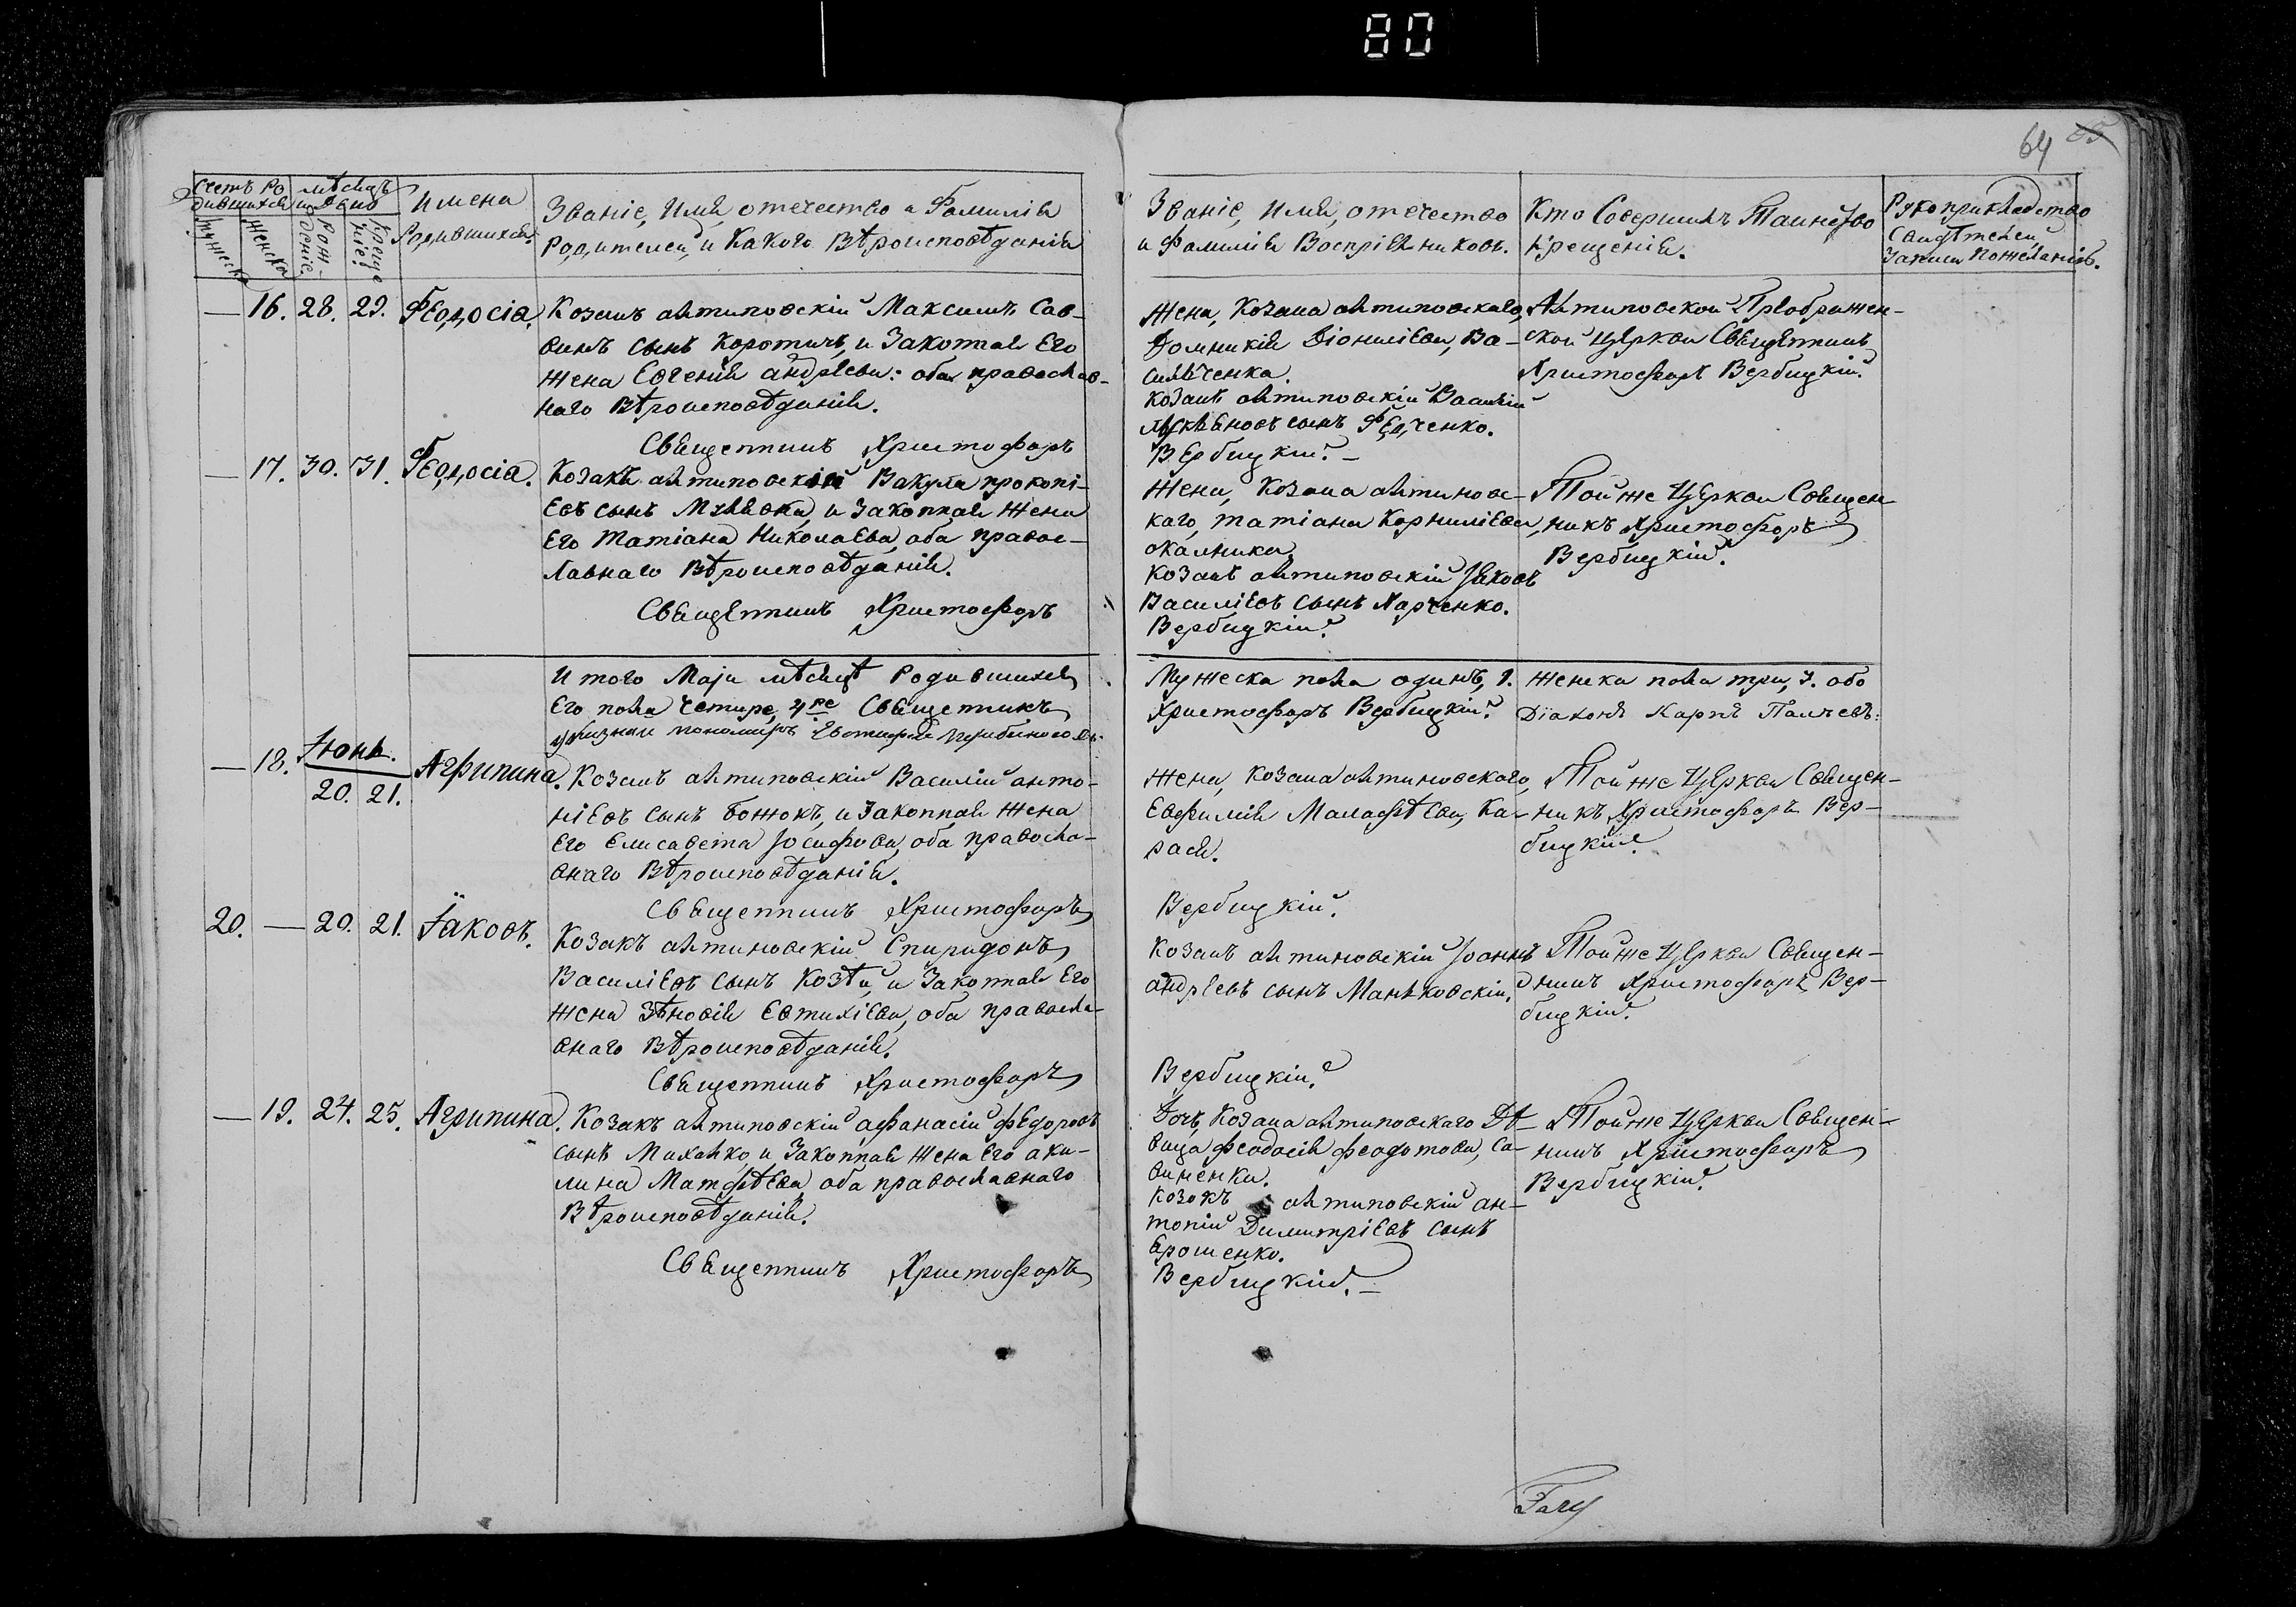 80
64 65
Счетъ Ро
дившихся
Мужеска
Женска
мѣсяцъ
и День
Рож-
деніе
Креще
ніе
Имена
Родившихся.
Званіе, Имя, отечество и Фамилія
Родителей, и Какого Вѣроисповѣданія
Званіе, Имя, отечество
и Фамилія Воспріемниковъ.
Кто Совершилъ Таинство
Крещенія.
Рукоприкладство
Свидѣтелей
Записи по желанію.
— 16. 28. 29. Феодосіа.
Козакъ антиповскій Максимъ Сав-
винъ сынъ Коротичъ, и Законная Его
жена Евгенія андреева: оба православ-
наго Вѣроисповѣданія.
Священникъ Христофоръ
Жена, Козака антиповскаго,
Домникія Діонисіева, Ва-
сильченка.
Козакъ антиповскій Василій
сынъ Федченко.
Вербицкій. —
Антиповской Преображен-
ской церкви Священникъ
Христофоръ Вербицкій.
— 17. 30. 31. Феодосіа.
Козакъ антиповскій Вакула прокопі-
евъ сынъ и Законная Жена
Его Татіана Николаева, оба правос-
лавнаго Вѣроисповѣданія.
Священникъ Христофоръ
Жена, Козака антиповс-
каго, татіана Корниліева,
Козакъ антиповскій Іяковъ
Василіевъ сынъ Харченко.
Вербицкій.
Той же Церкви Священ-
никъ Христофоръ
Вербицкій.
Итого Маія мѣсяцѣ Родившихся
Мужеска пола одинъ, 1. Женска пола три, 3. обо
Его пола четыре, 4ре Священникъ
Христофоръ Вербицкій.
Діаконъ Карпъ
пономаръ
— 18. Іюнь. 20. 21. Агрипина.
Козакъ антиповскій Василій анто-
ніевъ сынъ Божокъ, и Законная Жена
Его Елисавета Іосифова, оба правосла-
внаго Вѣроисповѣданія.
Священникъ Христофоръ
Жена, Козака антиповскаго,
Евфимія Малафѣева, Ка-
рася.
Вербицкій.
Той же Церкви Священ-
никъ Христофоръ Вер-
бицкій.
20. — 20. 21. Іаковъ.
Козакъ антиповскій Спиридонъ
Василіевъ сынъ Козѣй, и Законная Его
жена Зѣновія Евтихіева, оба правосла-
внаго Вѣроисповѣданія.
Священникъ Христофоръ
Козакъ антиповскій Іоаннъ
андреевъ сынъ Маньковскій.
Вербицкій.
Той же Церкви Священ-
никъ Христофоръ Вер-
бицкій.
— 19. 24. 25. Агрипина.
Козакъ антиповскій афанасій федоровъ
сынъ Михалко, и Законная Жена Его аки-
лина Матфѣева оба православнаго
Вѣроисповѣданія.
Священникъ Христофоръ
Дочь, Козака антиповскаго Дѣ-
вица феодосія феодотова, Са-
виненка.
Козокъ антиповскій ан-
тоній Димитріевъ сынъ
Ерошенко.
Вербицкій. —
Той же Церкви Священ-
никъ Христофоръ
Вербицкій.